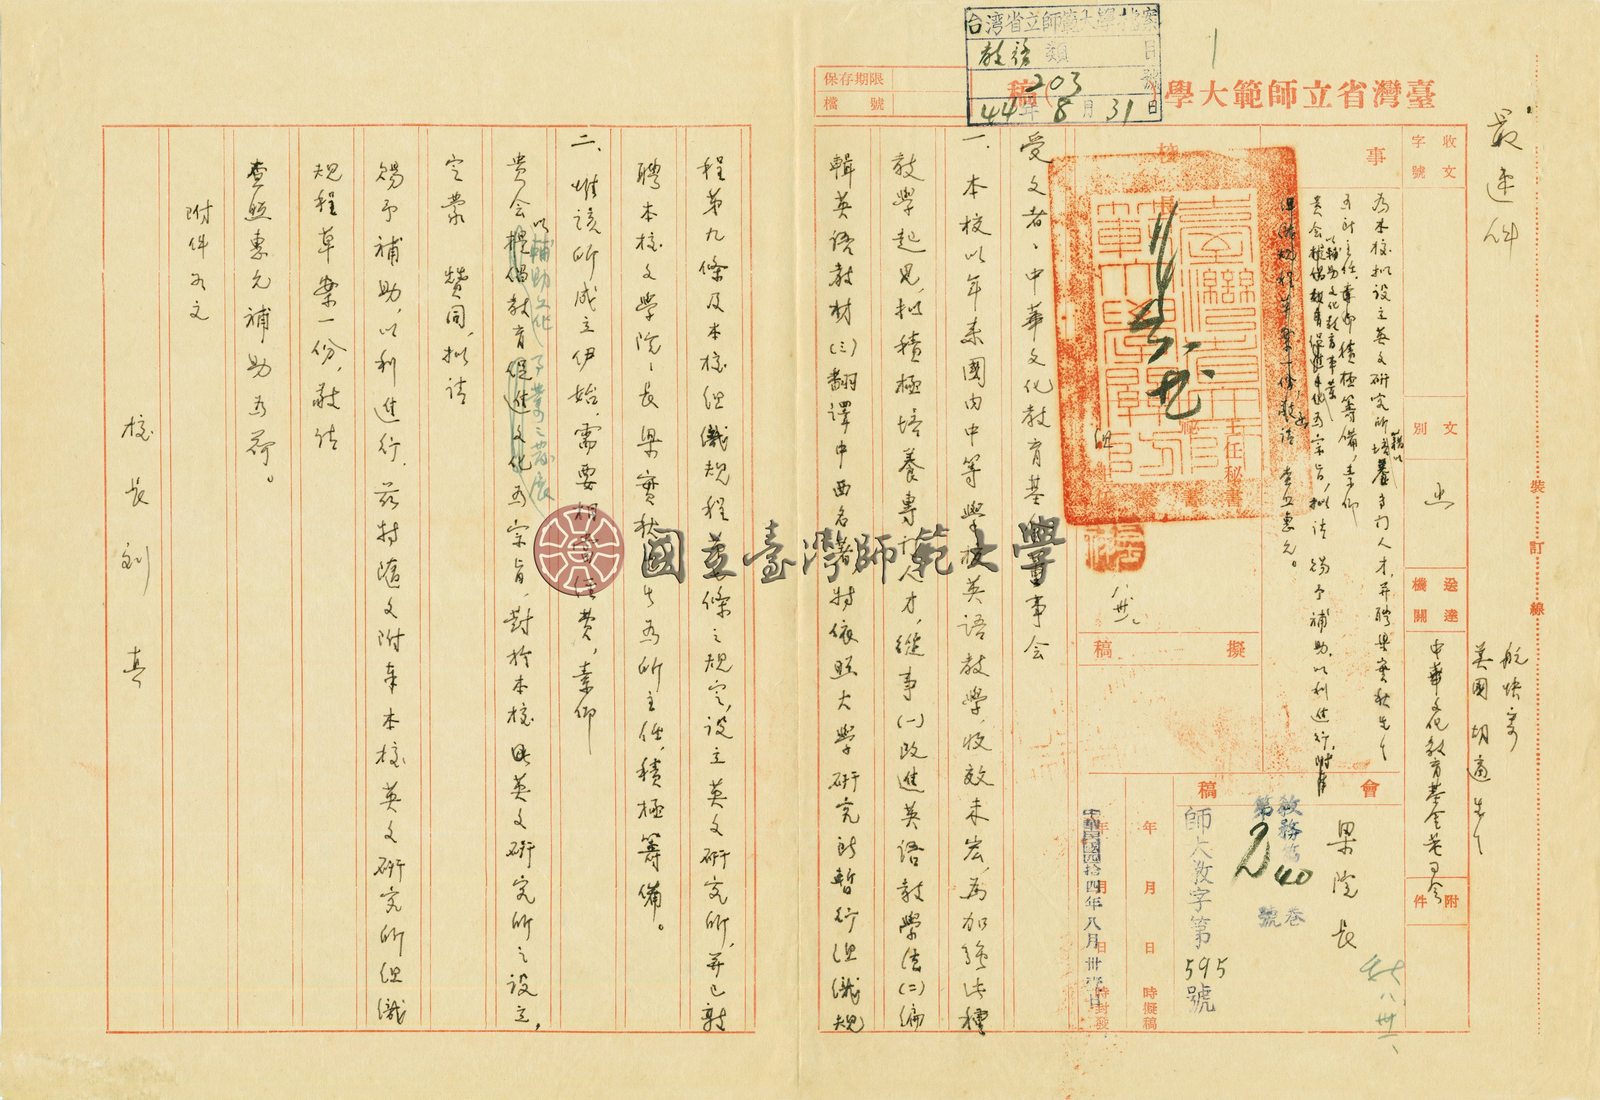 臺灣省立師範大學(稿)
台湾省立師範大學档案
教務類 目
203 號
44年8月31日
保存期限
檔號
最速件
航快寄
美國胡適先生
裝訂線
收文
字號
文別
送達機關
中華文化教育基金董事會
附件
事
為本校擬設立英文研究所藉以培養專門人才，并聘梁實秋先生
為所主任，業即積極籌備，素仰
貴會以輔助文化教育事業為宗旨，擬請 賜予補助，以利進行，附奉
組織規程草案一份，敬請 查照惠允。
校長
主任秘書
擬稿
會稿
梁院長
教務
第240號
師大教字第595號
年月日時擬稿
中華民國四拾四年八月卅一日
受文者、中華文化教育基金董事会
一、本校以年來國内中等學校英语教學，收效未宏，為加強此種
教學起見，拟積極培養專门人才，從事(一)改進英语教學法(二)编
輯英语教材(三)翻譯中西名著特依照大學研究所暫行组織規
程第九條及本校组織規程第 條之規定，設立英文研究所，并已敦
聘本校文學院、長梁實秋先生為所主任，積極籌備。
二、惟該所成立伊始，需要相當经费，素仰
貴会以輔助文化事業之發展為宗旨，對於本校此英文研究所之設立，
提倡教育促進文化
定蒙 贊同，拟请
賜予補助，以利進行，茲特備文附奉本校英文研究所组織
規程草案一份，敬请
查照惠允補助為荷。
附件如文
校長劉真
國立臺灣師範大學